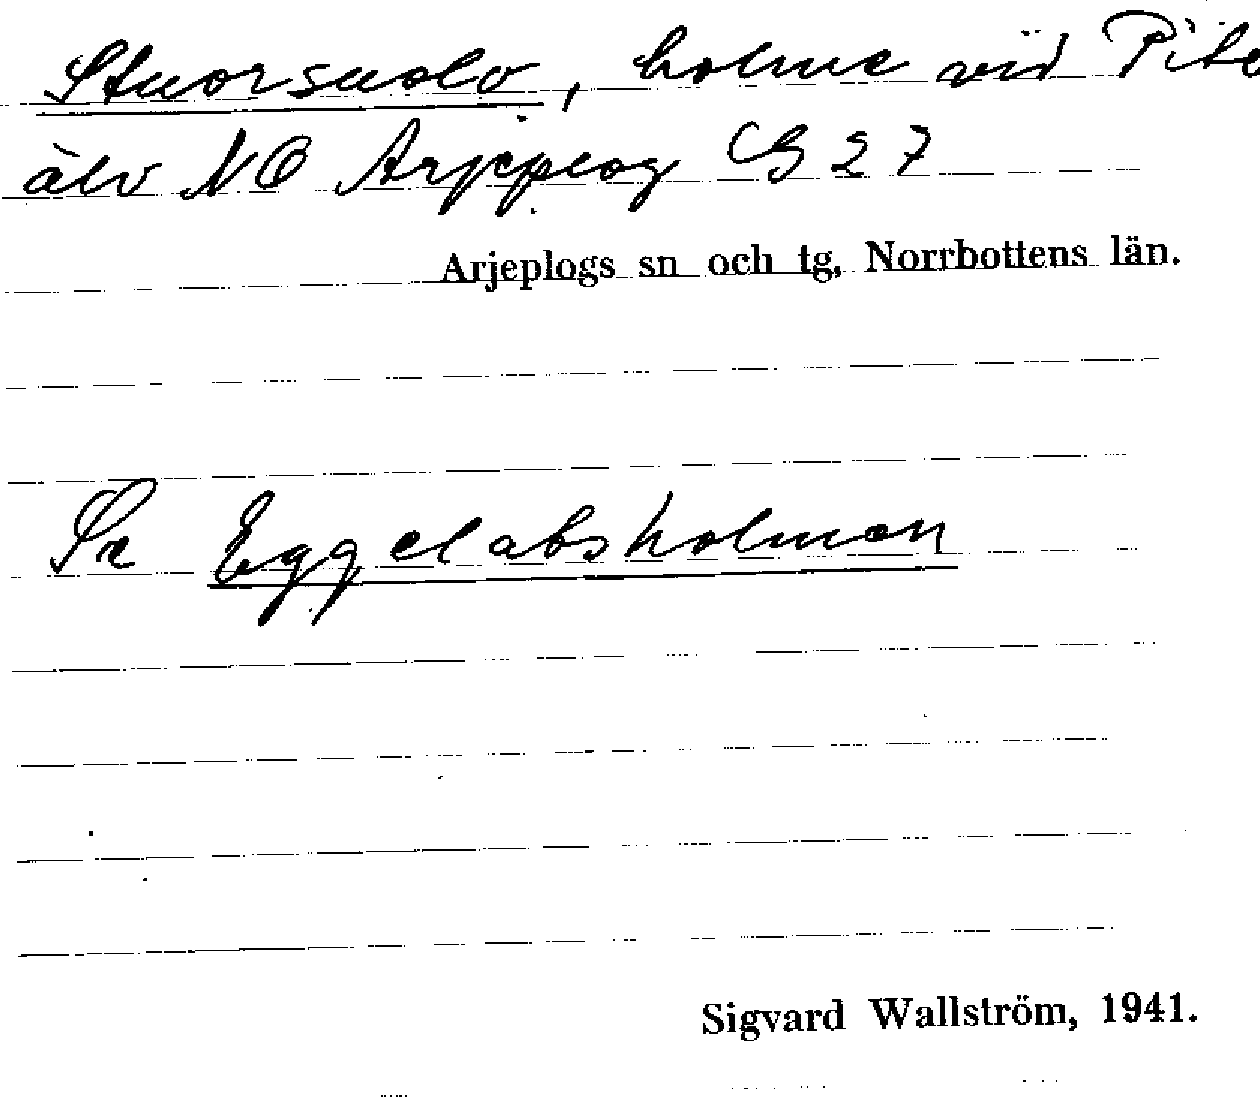 Stuorsuolo, holme vid Pite
älv NO Arjeplog G 27
Arjeplogs sn och tg, Norrbottens län.
Se Eggelabsholmen
Sigvard Wallström, 1941.